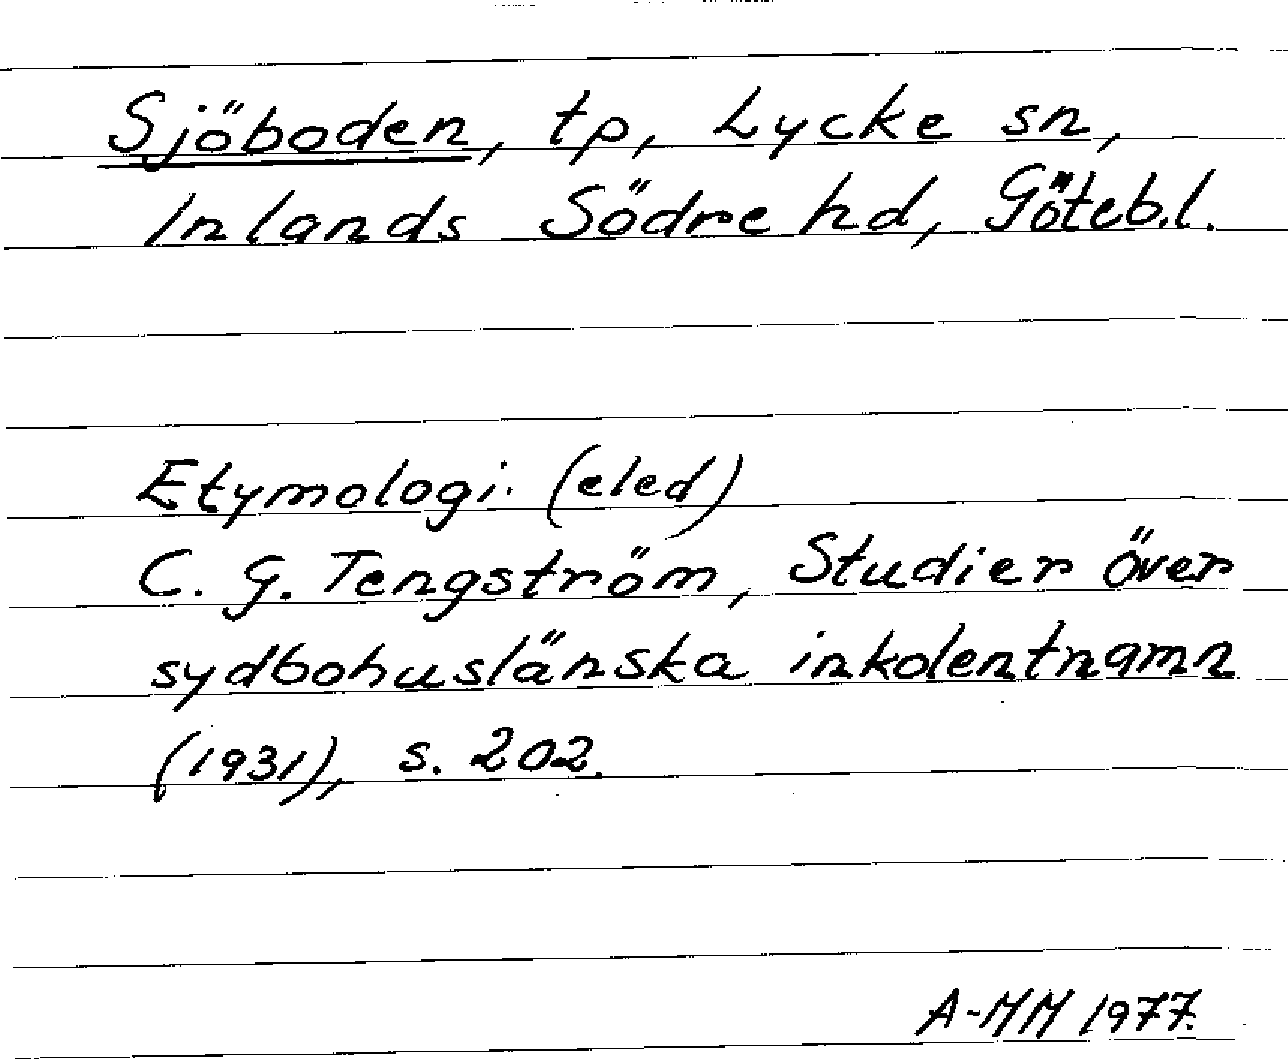 Sjöboden, tp, Lycke sn,
Inlands Södre hd, Göteb.l.
Etymologi. (eled)
C. G. Tengström, Studier över
sydbohuslänska inkolentnamn
(1931), s. 202.
A-MM 1977.